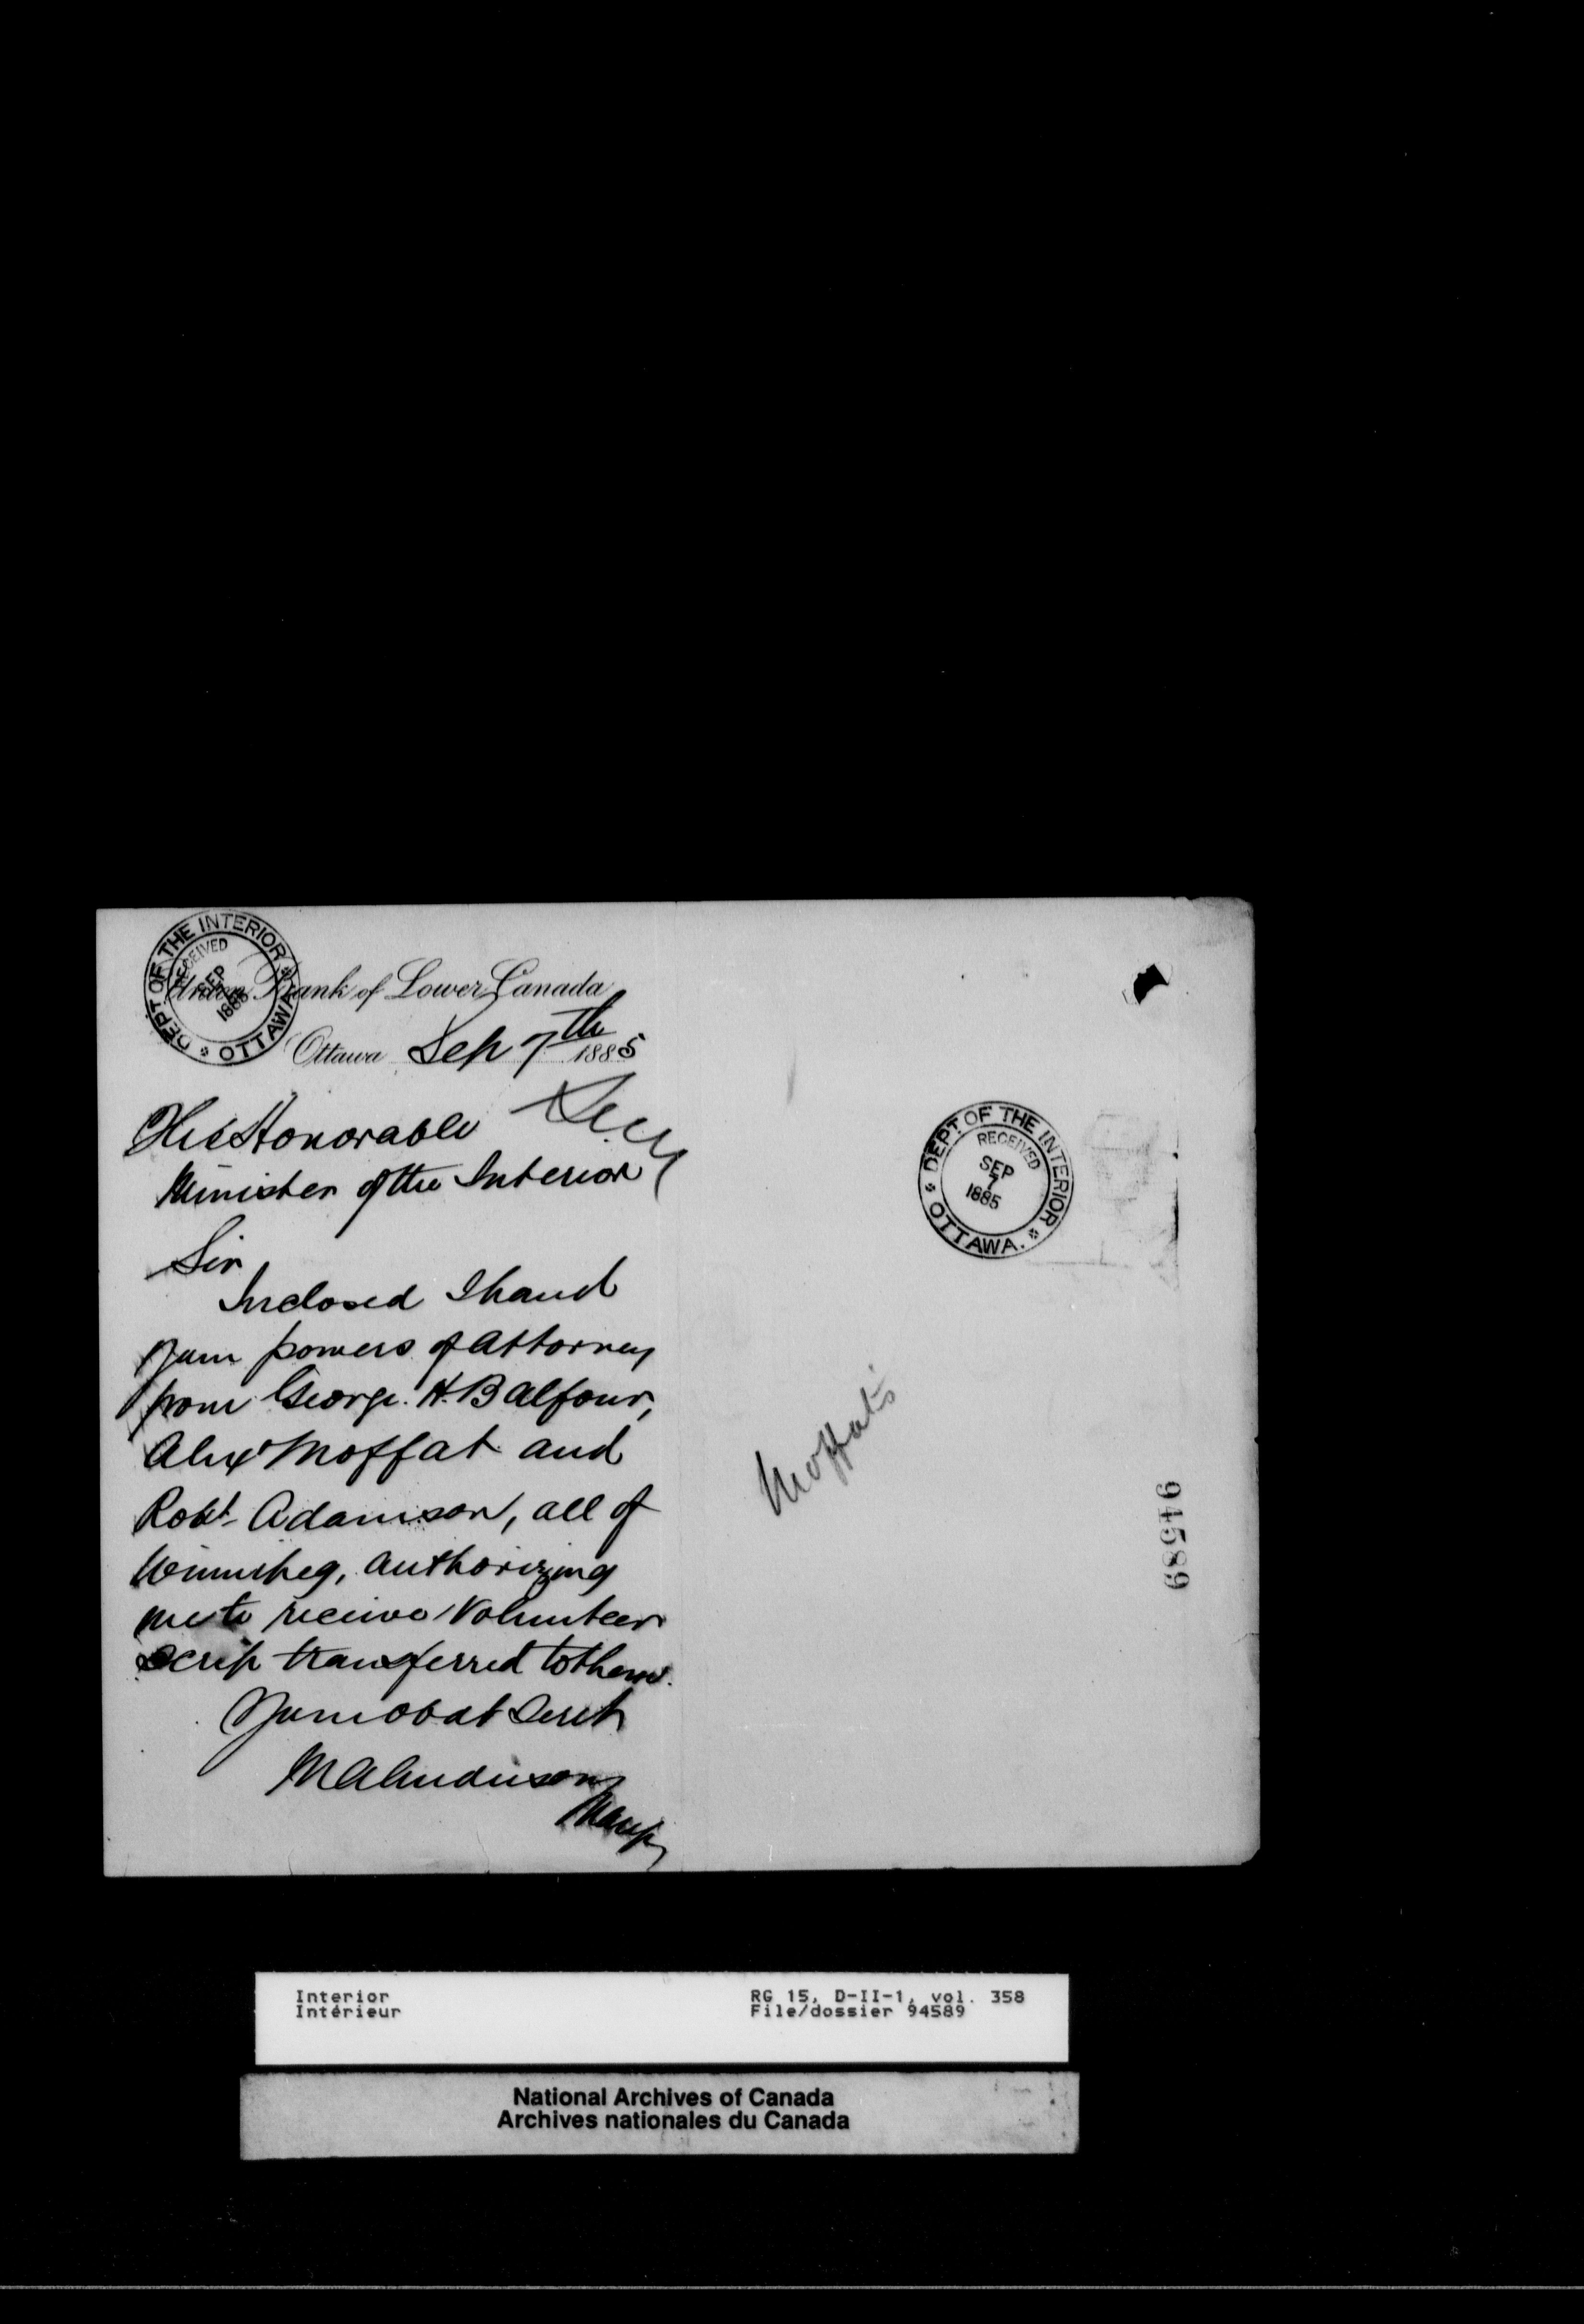 DEPT OF THE INTERIOR
RECEIVED
SEP
1885
OTTAWA
Union Bank of Lower Canada
Ottawa Sep 7th 1885
The Honorable
Minister of the Interior
Sir
Inclosed I hand
you powers of attorney
from George. H. Balfour,
Alexr Moffat and
Robt Adamson, all of
Winnipeg, authorizing
me to receive Volunteer
scrip transferred to them.
Your obdt Servt
MAAnderson
DEPT. OF THE INTERIOR
RECEIVED
SEP
7
1885
OTTAWA.
Moffat's
94589
Interior
Intérieur
RG 15, D-II-1, vol. 358
File/dossier 94589
National Archives of Canada
Archives nationales du Canada